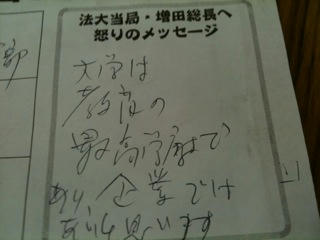 法大当局・増田総長へ
怒りのメッセージ
大学は
教育の
最高学府で
あり、企業では
ないと思います
部